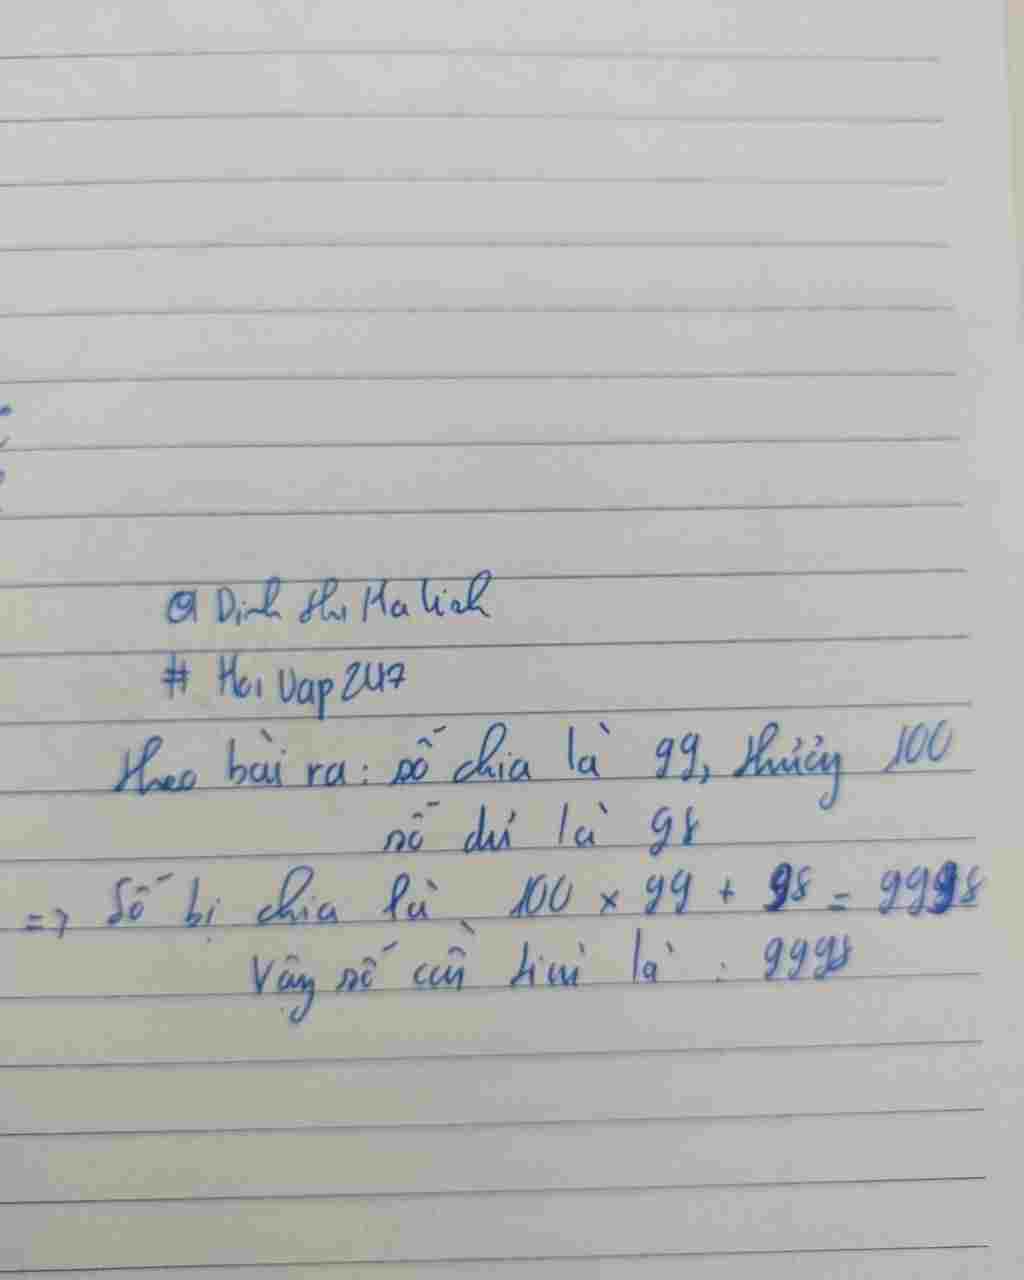 @ Dinh thi Ha Linh
# Hoi Vap 247
Theo bài ra: số chia là 99, thương 100
số dư là 98
=> Số bị chia là 100 x 99 + 98 = 9998
Vậy số cần tìm là : 9998